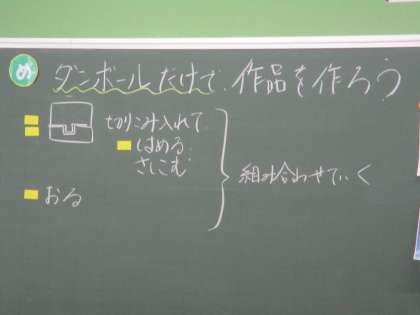 め
ダンボールだけで 作品を作ろう
切りこみ入れて
はめる
さしこむ
おる
組み合わせていく